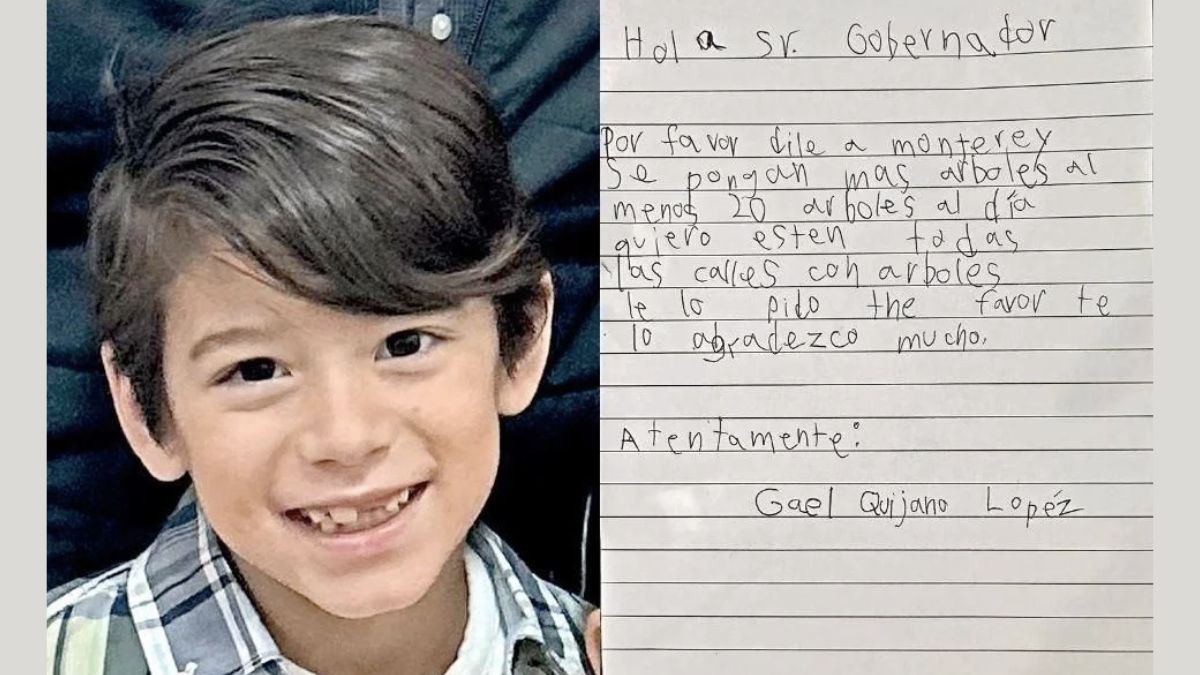 Hola Sr. Gobernador
Por favor dile a monterey
Se pongan mas arboles al
menos 20 arboles al día
quiero esten todas
las calles con arboles
le lo pido the favor te
lo agradezco mucho.
Atentamente:
Gael Quijano Lopéz